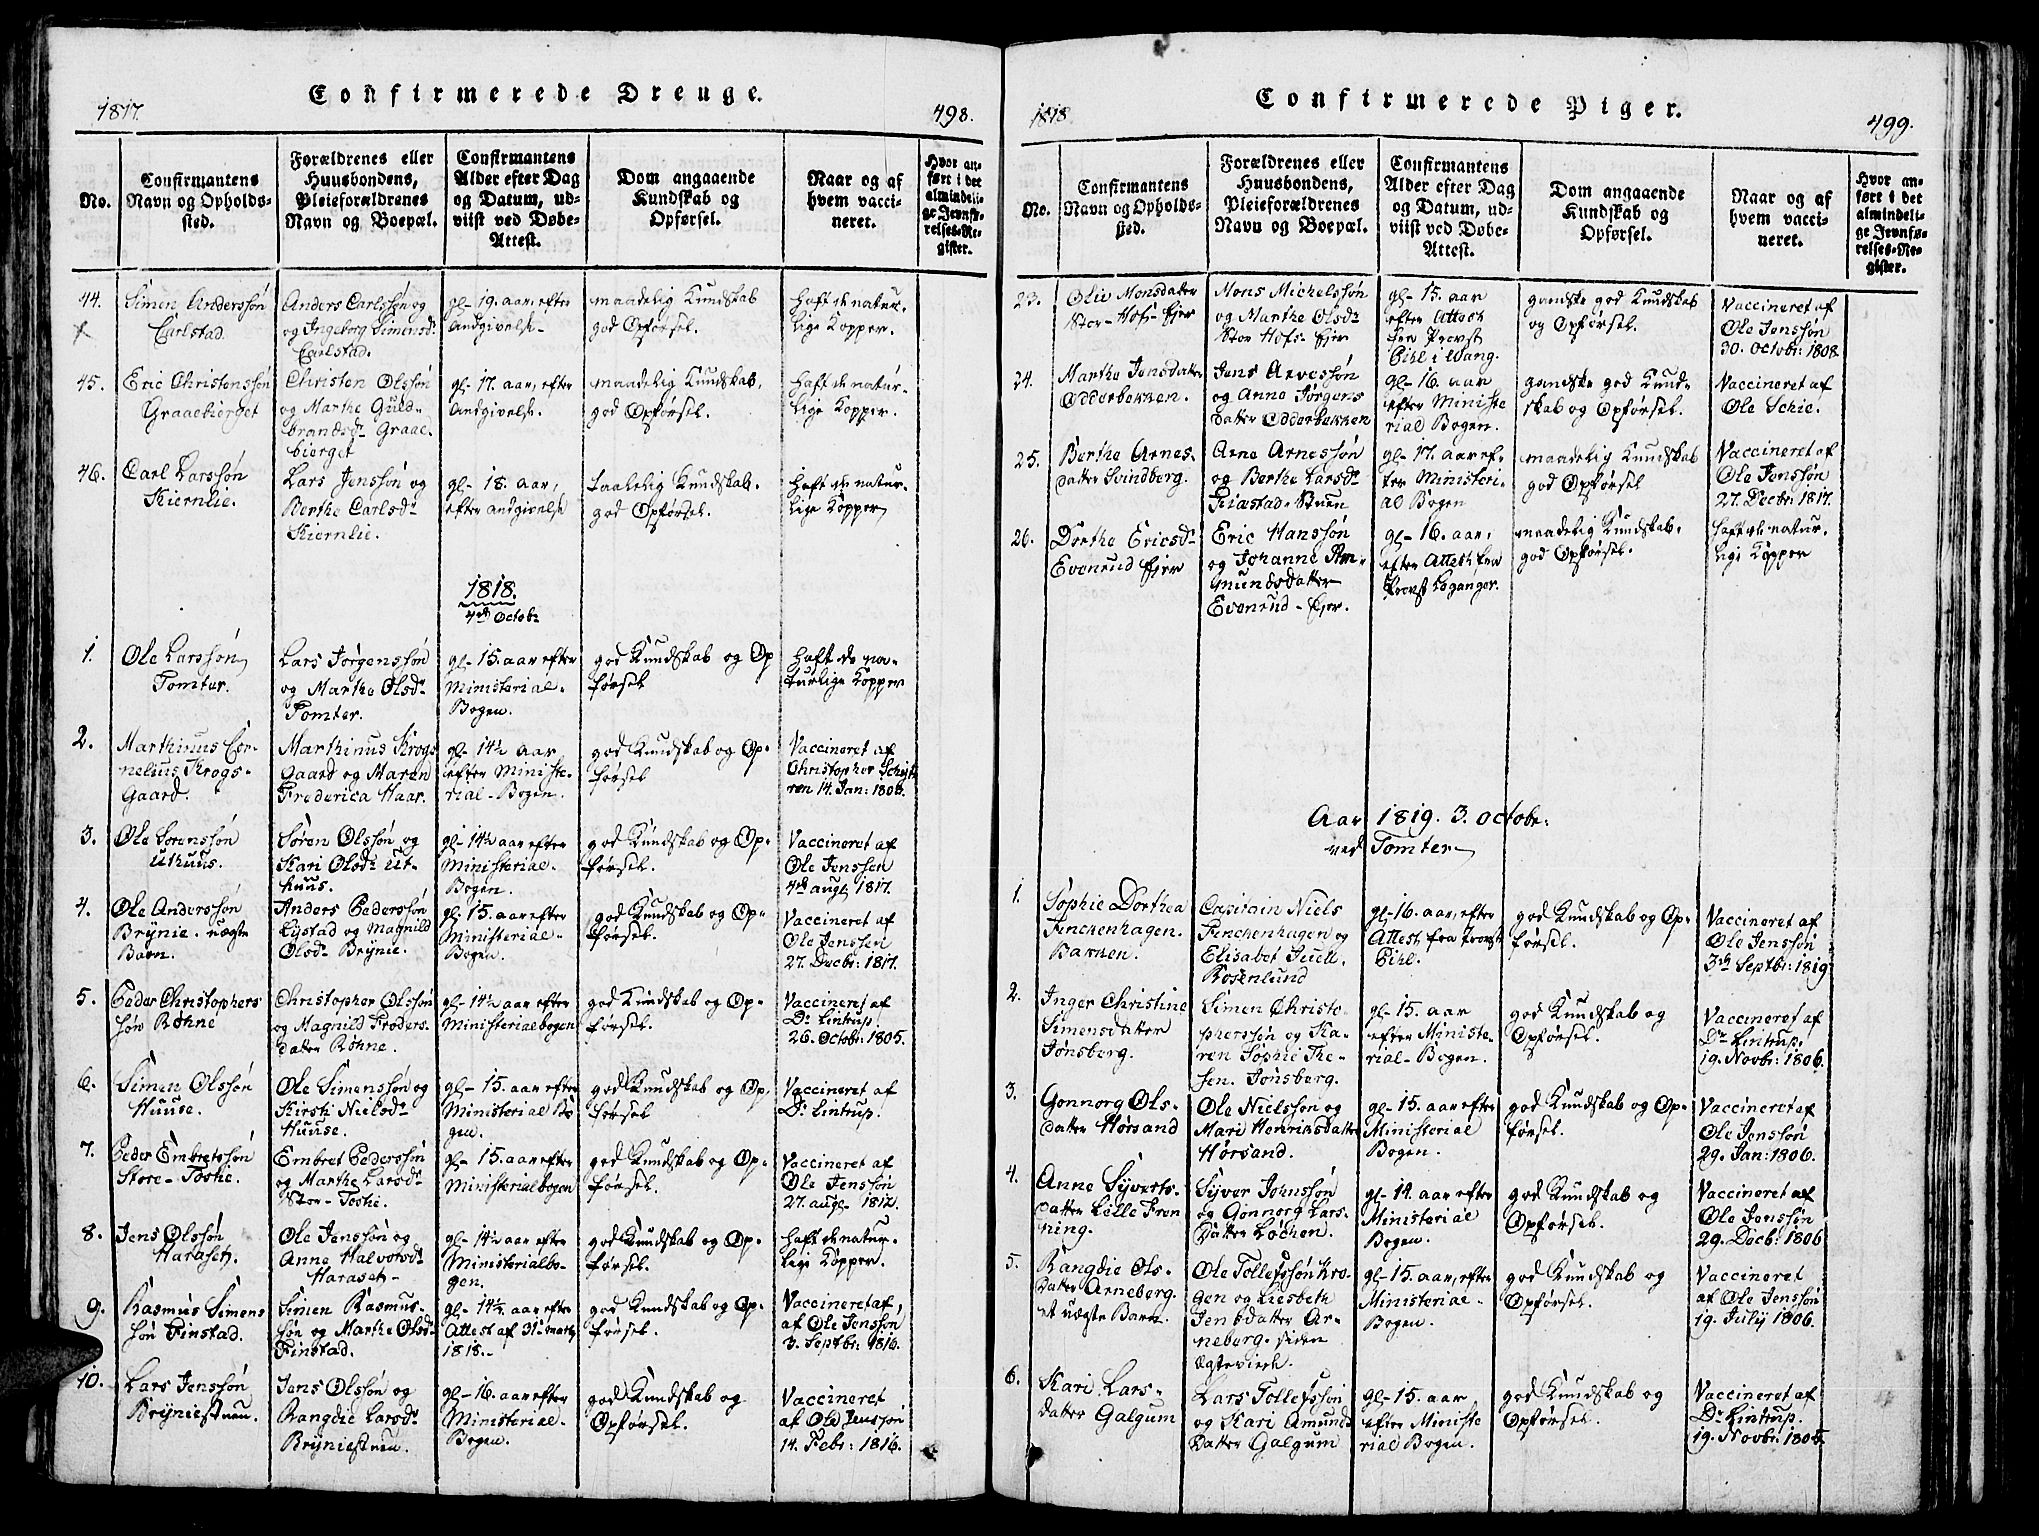 1817.
Confirmerede Drenge.
498.
No.
Confirmantens
Navn og Opholds-
sted.
Forældrenes eller
Huusbondens,
Pleieforældrenes
Navn og Boepæl.
Confirmantens
Alder efter Dag
og Datum, ud-
viist ved Døbe-
Attest.
Dom angaaende
Kundskab og
Opførsel.
Naar og af
hvem vacci-
neret.
Hvor an-
ført i det
almindeli-
ge Jevnfø-
relses-Re-
gister.
44.
Simen Anderssøn
Carlstad.
Anders Carlssøn og
og Ingeborg Simensd.
Carlstad.
gl- 19. aar, efter
Andgivelse-
maadelig Kundskab
god Opførsel.
haft de natur-
lige Kopper.
45.
Eric Christenssøn
Graaebierget
Christen Olssøn
og Marthe Guld-
brandsd- Graae-
bierget
gl- 17. aar, efter
Andgivelse.
maadelig Kundskab,
god Opførsel.
haft de natur-
lige Kopper.
46.
Carl Larssøn
Kiernlie.
Lars Jenssøn og
Berthe Carlsd-
Kiernlie.
gl- 18. aar,
efter andgivelse
taalelig Kundskab.
god Opførsel.
haft de natur-
lige Kopper
1818.
4de Octobr
1.
Ole Larssøn
Tomter.
Lars Jørgenssøn
og Marthe Olsd-
Tomter.
gl- 15. aar efter
Ministerial-
Bogen.
god Kundskab og Op
førsel
haft de na-
turlige Kopper
2.
Marthinus Cor-
nelius Krogs-
Gaard.
Marthinus Krogs
Gaard og Maren
Frederica Haar.
gl- 14½ aar
efter Ministe-
rial-Bogen.
god Kundskab og Op-
førsel
Vaccineret af
Christopher
14. Jan: 1806.
3.
Ole Sorenssøn
Uthuus.
Søren Olssøn og
Kari Olsd- Ut-
huus.
gl- 14½ aar efter
Ministerial-
Bogen.
god Kundskab og Op-
førsel.
Vaccineret af
Ole Jenssen
4de augt 1817.
4.
Ole Anderssøn
Brynie. uægte
Barn.
Anders Pederssøn
Lystad og Magnild
Olsd- Brynie.
gl- 15. aar efter
Ministerial-
Bogen.
god Kundskab og Op-
førsel.
Vaccineret af
Ole Jenssen
27. Decbr: 1817.
5.
Peder Christophers
søn Røhne
Christopher Olssøn
og Magnild Froders-
datter Røhne.
gl- 14½ aar efter
Ministerialbogen
god Kundskab og Op-
førsel.
Vaccineret af
Dr Lintrup
26. Octobr: 1805.
6.
Simen Olssøn
Huuse.
Ole Simenssøn og
Kirsti Nielsd-
Huuse.
gl- 15. aar efter
Ministerial Bo
gen.
god Kundskab og Op,
førsel
Vaccineret af
Dr Lintrup.
7.
Peder Embretssøn
Store-Toshie.
Embret Pederssøn
og Marthe Larsd-
Stor-Toshi.
gl- 15. aar efter
Ministerialbogen
god Kundskab og Op-
førsel.
Vaccineret af
Ole Jenssøn
27. augt- 1812.
8.
Jens Olssøn
Haraset.
Ole Jenssøn og
Anne Halvorsd-
Haraset-
gl- 14½ aar efter
Ministerialbo-
gen.
god Kundskab og Op-
førsel.
haft de natur-
lige Kopper.
9.
Rasmus Simens
søn Finstad.
Simen Rasmus-
søn og Marthe Olsd-
Finstad.
gl- 14½ aar efter
Attest af 31te marty
1818.-
god Kundskab og Op-
førsel.
Vaccineret af,
af Ole Jenssøn
3. Septbr: 1816.
10.
Lars Jenssøn
Bryniestuen.
Jens Olssøn og
Rangdie Larsd-
Bryniestuen.
gl- 16. aar efter
Ministerial-
Bogen.
god Kundskab og
Opførsel.
Vaccineret
af Ole Jenssøn
14. Febr: 1816.
1818
Confirmerede Piger.
499.
No.
Confirmantens
Navn og Opholds-
sted.
Forældrenes eller
Huusbondens,
Pleieforældrenes
Navn og Boepæl.
Confirmantens
Alder efter Dag
og Datum, ud-
viist ved Døbe-
Attest.
Dom angaaende
Kundskab og
Opførsel.
Naar og af
hvem vacci-
neret.
Hvor an-
ført i det
almindeli-
ge Jevnfø-
relses-Re-
gister.
23.
Oliv Monsdatter
Stor-Hofs-Ejer
Mons Michelssøn
og Marthe Olsd-
Stor Hofs-Ejer
gl- 15. aar
efter Attest
fra Provst
Pihl i Wang.
gandske god Kundskab
og Opførsel.
Vaccineret af
Ole Jenssøn
30. Octobr: 1808.
24.
Marthe Jensdatter
Odderbakken.
Jens Arvessøn
og Anne Jørgens
datter Odderbakken
gl- 16. aar
efter Ministe
rial Bogen.
gandske god Kund-
skab og Opførsel.
Vaccineret af
Ole Schie.
25.
Berthe Arnes-
datter Svindberg.
Arne Arnessøn
og Berthe Larsd-
Kiæstad-Stuen
gl- 17. aar ef-
ter Ministeri-
al Bogen
maadelig Kundskab
god Opførsel
Vaccineret af
Ole Jenssøn
27. Decbr: 1817.
26.
Dorthe Ericsd-
Evenrud Ejer
Eric Hanssøn
og Johanne Am-
mundsdatter
Evenrud-Ejer.
gl- 16. aar,
efter Attest fra
Provst Leganger.
maadelig Kundskab.
god Opførsel.
haft de natur-
lige Kopper
Aar 1819. 3. Octobr:
ved Tomter
1.
Sophie Dorthea
Finchenhagen.
Bakken.
Capitain Niels
Finchenhagen og
Elisabet Juell
Rosenlund
gl- 16. aar, efter
Attest fra Provst
Pihl.
god Kundskab og Op-
førsel.
Vaccineret af
Ole Jenssøn
3de Septbr: 1819
2.
Inger Christine
Simensdatter
Jønsberg.
Simen Christo-
pherssøn og Ka-
ren Sophie The-
sen. Jønsberg.
gl- 15. aar
efter Ministe-
rial-Bogen.
god Kundskab og
Opførsel.
Vaccineret af
Dr Lintrup,
19. Novbr: 1806.
3.
Gonnorg Ols-
datter Hørsand
Ole Nielssøn og
Mari Henriksdatter
Hørsand.
gl- 15. aar efter
Ministerial
Bogen.
god Kundskab og Op-
førsel.
Vaccineret af
Ole Jenssøn
29. Jan: 1806.
4.
Anne Syverts-
datter Lille Fren
ning.
Syver Johnssøn
og Gonnorg Lars-
datter Løchen.
gl- 14. aar efter
Ministerial
Bogen.
god Kundskab og
Opførsel.
Vaccineret af
Ole Jenssøn
29. Decb: 1806
5.
Rangdie Ols-
datter Arneberg.
et uægte Barn.
Ole Tollefssøn Kro-
gen og Liesbeth
Jensdatter Ar-
neberg. siden
ægteviede.
gl- 15. aar, efter
Ministerial-
Bogen.
god Kundskab og
Opførsel.
Vaccineret
af Ole Jenssøn
19. July 1806.
6.
Kari Lars-
datter Galgum
Lars Tollefssøn
og Kari Amunds
datter Galgum
gl- 15. aar
efter Ministe
rial Bogen.
god Kundskab og
Opførsel.
Vaccineret af
Dr Lintrup.
19. Novbr: